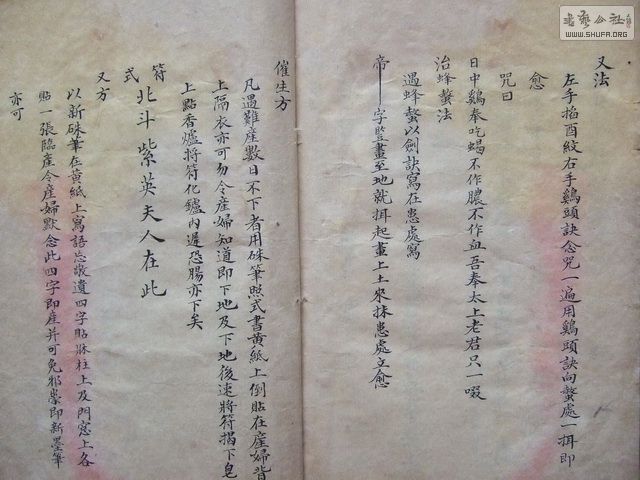 又法
左手掐酉紋右手鷄頭訣念咒一遍用鷄頭訣向螫處一揖即
愈
咒曰
日中鷄奉吃蝎不作膿不作血吾奉太上老君只一啜
治蜂螫法
遇蜂螫以劍訣寫在患處寫
帝一字豎畫至地就揖起畫上土來抹患處立愈
催生方
凡遇難産數日不下者用硃筆照式書黄紙上倒貼在産婦背
上隔衣亦可勿令産婦知道即下地及下地後速將符揭下皂
上點香爐將符化鑪内遲恐腸亦下矣
符
式
北斗紫英夫人在此
又方
以新硃筆在黄紙上寫語忘敬遺四字貼牀柱上及門窓上各
貼一張臨産令産婦默念此四字即産并可免邪祟即新墨筆
亦可
書藝公社
WWW.SHUFA.ORG